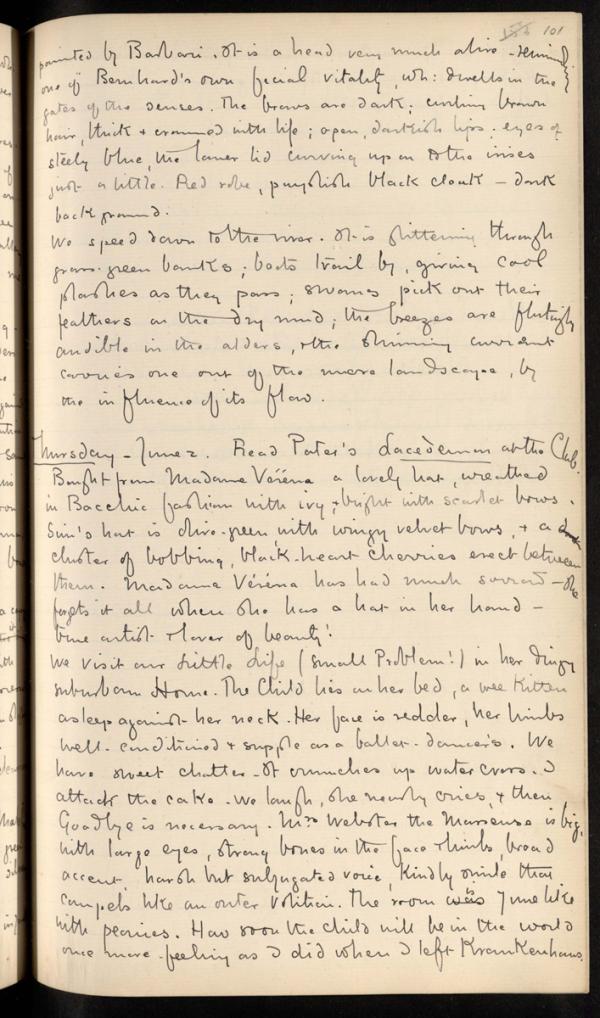 101
painted by Barbari. It is a head very much alive - reminding
one of Bernhard's own facial vitality, wh: dwells in the
gates of the senses. The brows are dark; curling brown
hair, thick & crammed with life; open, darkish lips. eyes of
steely blue, the lower lid curving up on to the irises
just a little. Red robe, purplish black cloak - dark
background.
We speed down to the river. It is flittering through
grass-green banks; boats trail by, giving cool
plashes as they pass; swans pick out their
feathers on the dry mud; the breezes are flutingly
audible in the alders, & the shining current
carries one out of the mere landscape, by
the influence of its flow.
Thursday - June 2. Read Pater's Lacedemon at the Club.
Bought from Madame Véréna a lovely hat, wreathed
in Bacchic fashion with ivy, & bright with scarlet bows.
Sim's hat is olive-green, with wingy velvet bows, & a
cluster of bobbing, black-heart cherries erect between
them. Madame Véréna has had much sorrow - she
forgets it all when she has a hat in her hand -
true artist & lover of beauty!
We visit our Little Life (Small Problem!) in her dingy
suburban Home. The Child lies on her bed, a wee Kitten
asleep against her neck. Her face is redder, her limbs
well-conditioned & supple as a ballet-dancer's. We
have sweet chatter - It crunches up water cress. I
attack the cake. We laugh, she nearly cries, & then
Goodbye is necessary. Mrs Webster the Masseuse is big,
with large eyes, strong bones in the face & limbs, broad
accent, harsh but subjugated voice, Kindly smile that
compels like an outer volition. The room was June like
with peonies. How soon the child will be in the world
once more - feeling as I did when I left Krankenhaus.